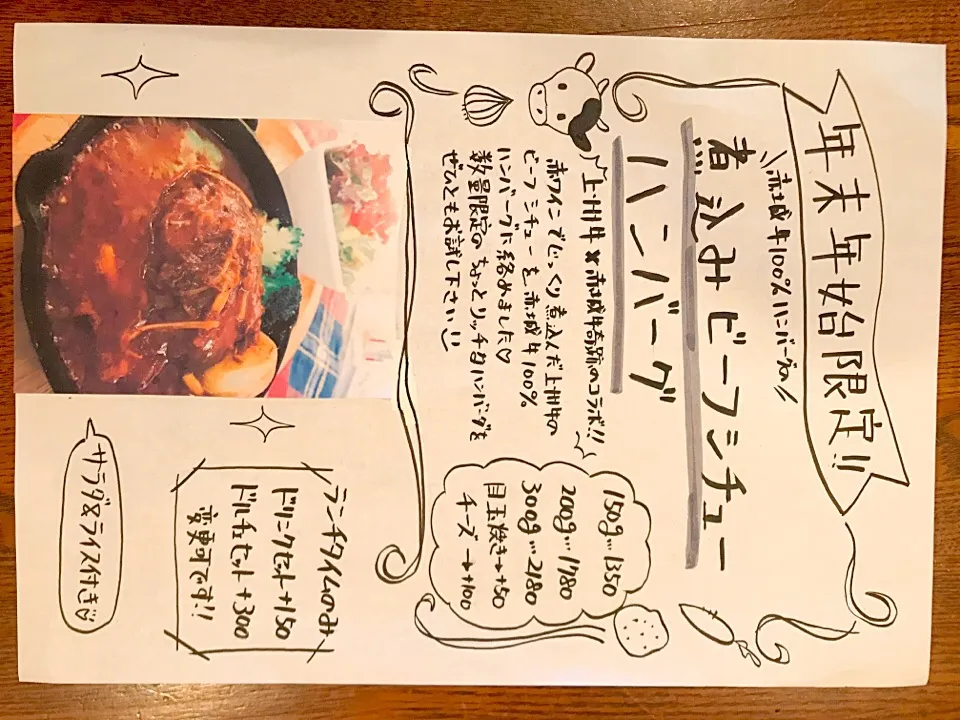 年末年始限定!!
赤城牛100%ハンバーグの
煮込みビーフシチュー
ハンバーグ
上州牛×赤城牛奇跡のコラボ!!
赤ワインでじっくり煮込んだ上州牛の
ビーフシチューを赤城牛100%
ハンバーグに絡めました♡
数量限定のちょっとリッチなハンバーグを
ぜひともお試し下さい
150g…1350
200g…1780
300g…2180
目玉焼き→+50
チーズ→+100
ランチタイムのみ
ドリンクセット+150
ドルチェセット+300
変更可です!!
サラダ&ライス付き♡